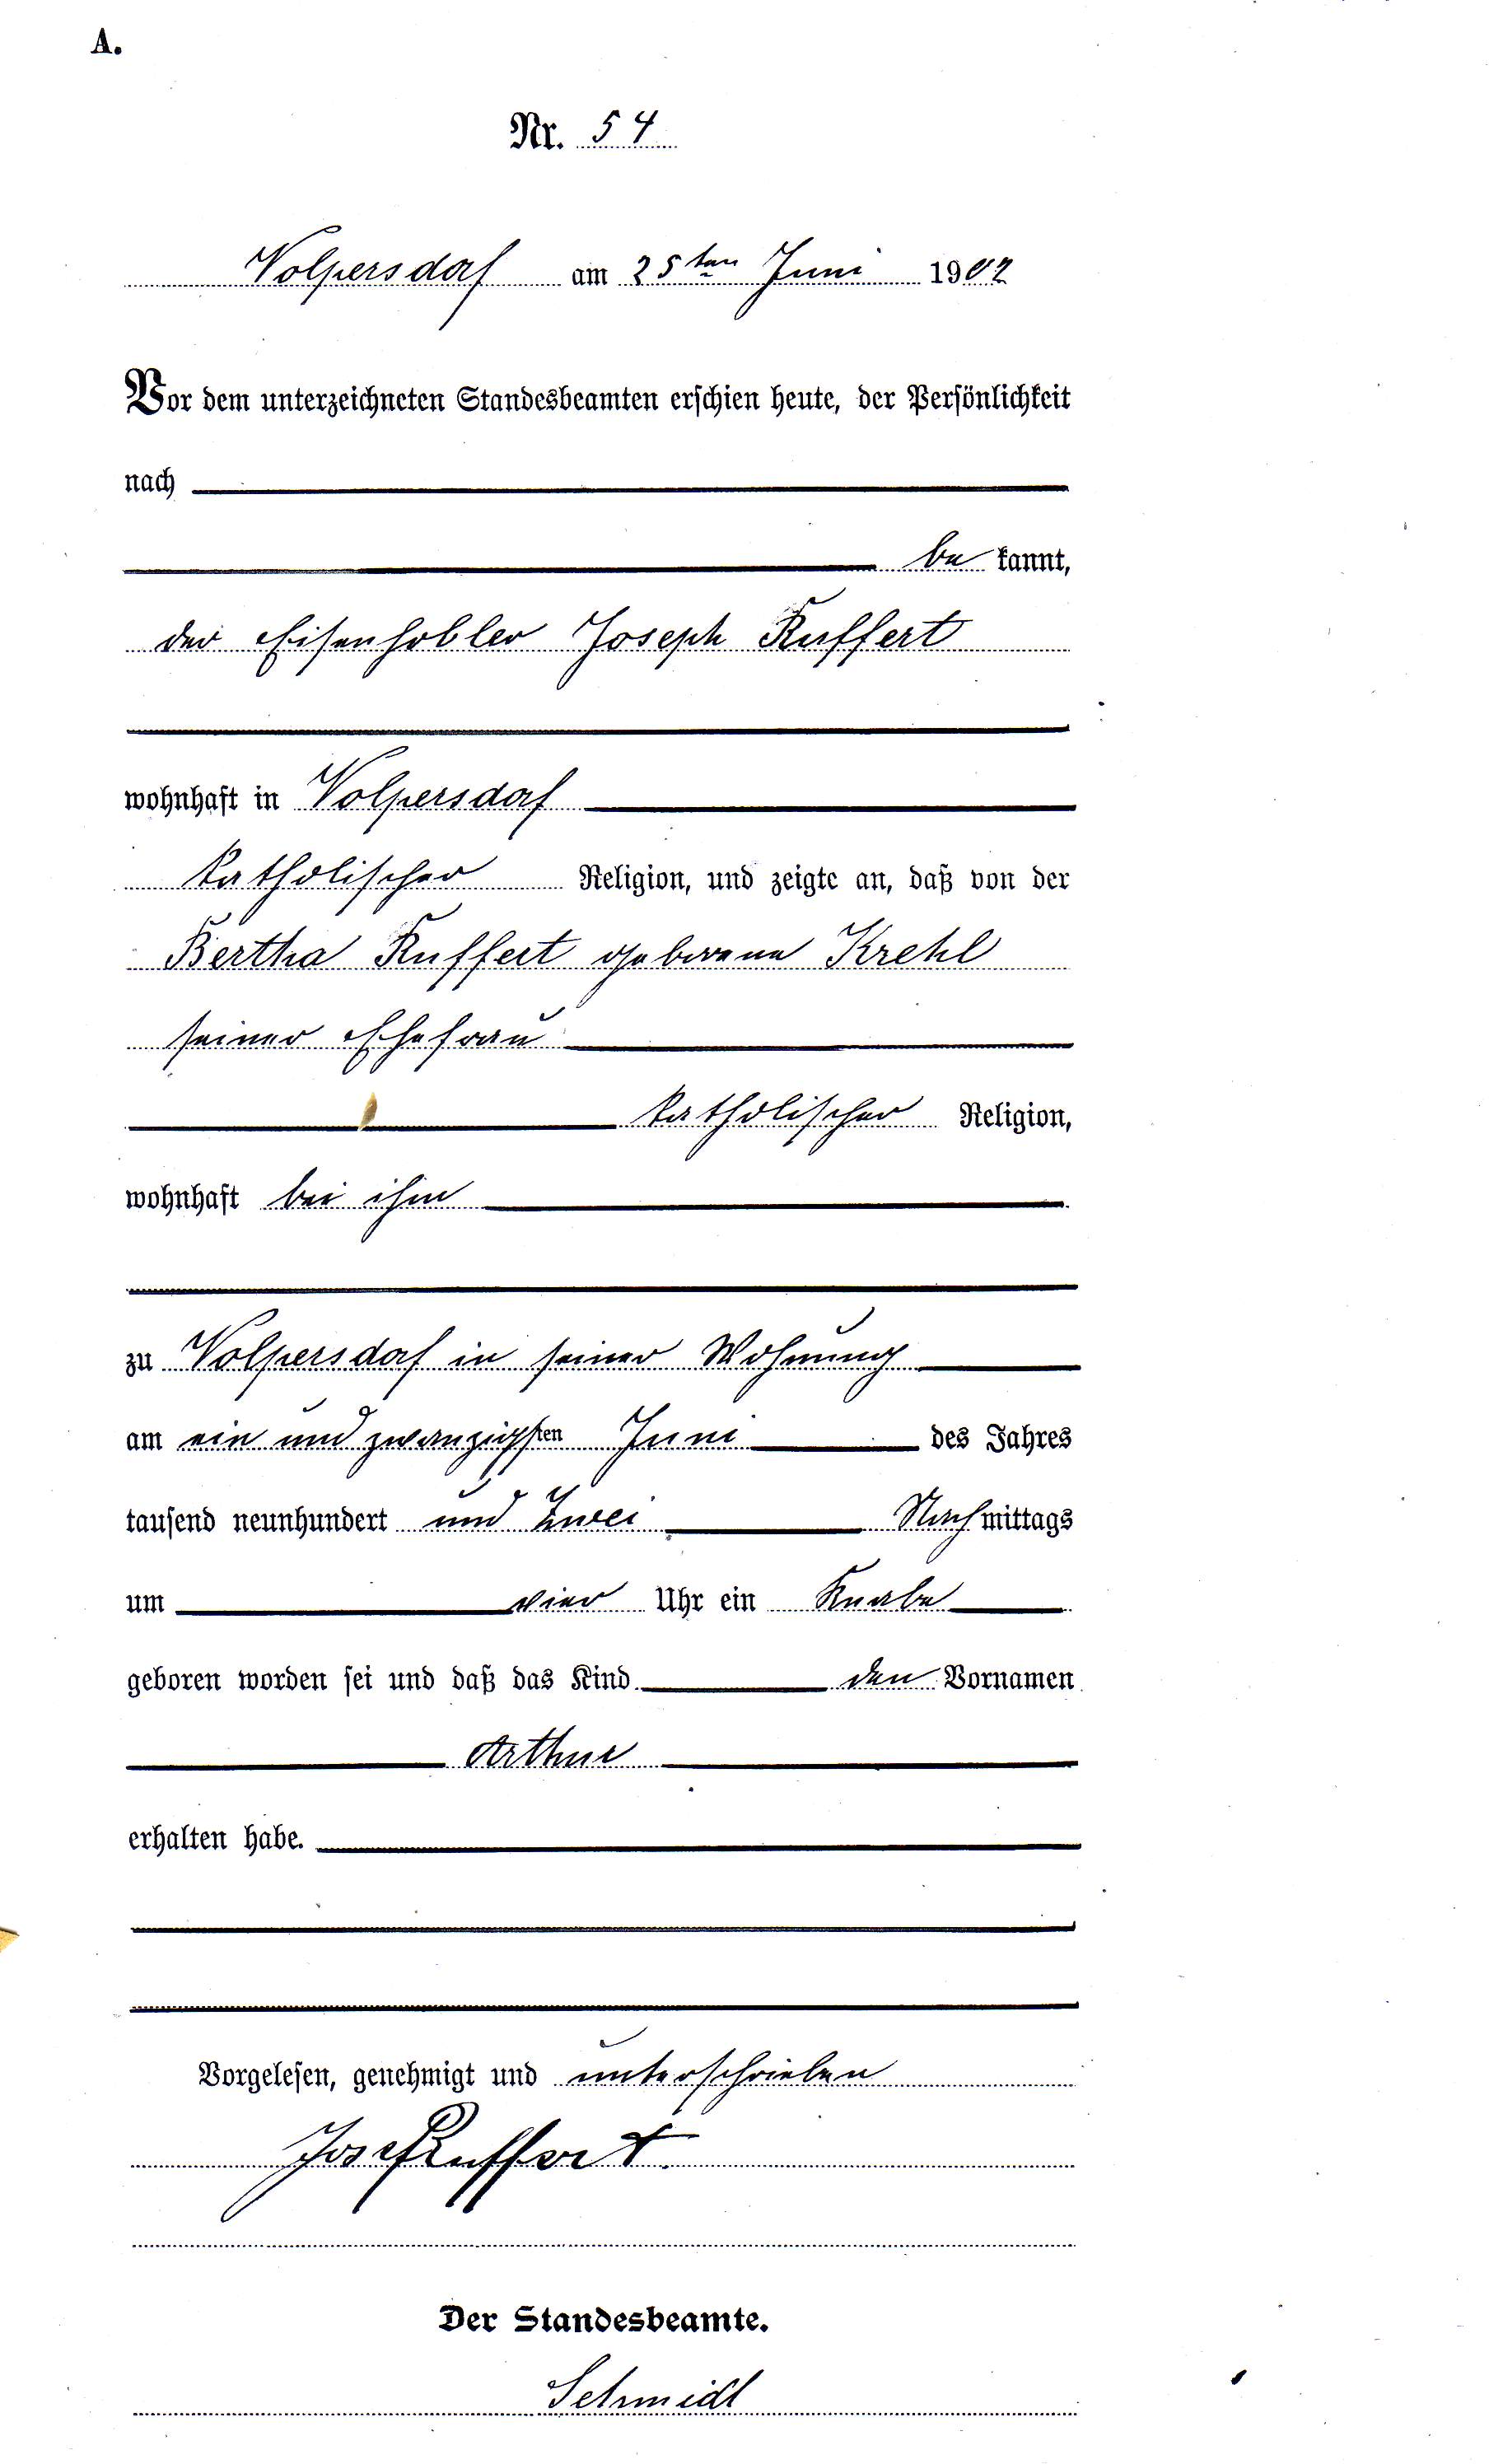 A.
Nr. 54
Volpersdorf am 25ten Juni 1902
Vor dem unterzeichneten Standesbeamten erschien heute, der Persönlichkeit
nach
be kannt,
der Eisenhobler Joseph Ruffert
wohnhaft in Volpersdorf
katholischer Religion, und zeigte an, daß von der
Bertha Ruffert geborene Krehl
seiner Ehefrau
katholischer Religion,
wohnhaft bei ihm
zu Volpersdorf in seiner Wohnung
am ein und zwanzigsten Juni des Jahres
tausend neunhundert und Zwei Nachmittags
um vier Uhr ein Knabe
geboren worden sei und daß das Kind den Vornamen
Arthur
erhalten habe.
Vorgelesen, genehmigt und unterschrieben
Josef Ruffert.
Der Standesbeamte.
Schmidt